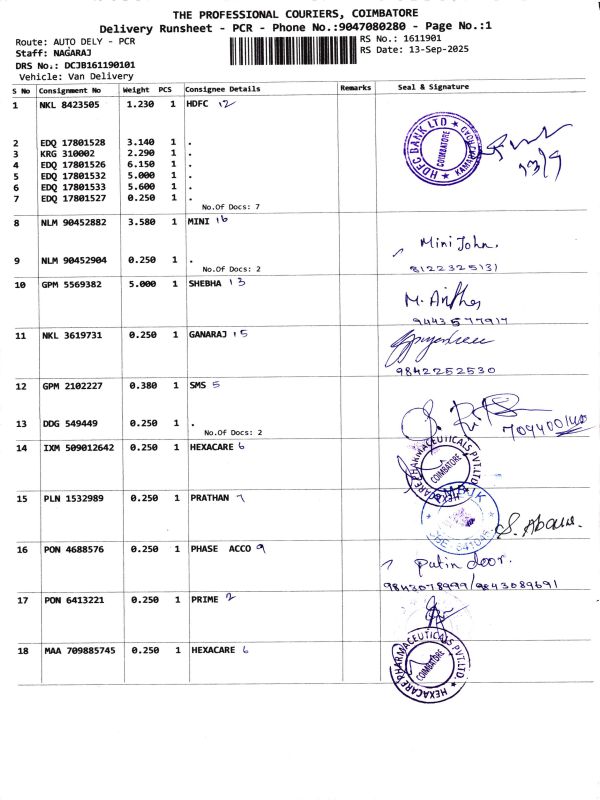 THE PROFESSIONAL COURIERS, COIMBATORE
Delivery Runsheet - PCR - Phone No.:9047080280 - Page No.:1
Route: AUTO DELY - PCR RS No.: 1611901
Staff: NAGARAJ RS Date: 13-Sep-2025
DRS No.: DCJB161190101
Vehicle: Van Delivery
S No Consignment No Weight PCS Consignee Details Remarks Seal & Signature
1 NKL 8423505 1.230 1 HDFC 12
HDFC BANK LTD COIMBATORE
13/9
2 EDQ 17801528 3.140 1 .
3 KRG 310002 2.290 1 .
4 EDQ 17801526 6.150 1 .
5 EDQ 17801532 5.000 1 .
6 EDQ 17801533 5.600 1 .
7 EDQ 17801527 0.250 1 .
No.Of Docs: 7
8 NLM 90452882 3.580 1 MINI 16
Mini John.
9 NLM 90452904 0.250 1 .
No.Of Docs: 2 8122325131
10 GPM 5569382 5.000 1 SHEBHA 13
9443577917
11 NKL 3619731 0.250 1 GANARAJ 15
9842252530
12 GPM 2102227 0.380 1 SMS 5
13 DDG 549449 0.250 1 .
No.Of Docs: 2
14 IXM 509012642 0.250 1 HEXACARE 6
HEXACARE PHARMACEUTICALS PVT.LTD. COIMBATORE
15 PLN 1532989 0.250 1 PRATHAN 7
16 PON 4688576 0.250 1 PHASE ACCO 9
Putin door.
9843078999/9843089691
17 PON 6413221 0.250 1 PRIME 2
18 MAA 709885745 0.250 1 HEXACARE 6
HEXACARE PHARMACEUTICALS PVT.LTD. COIMBATORE